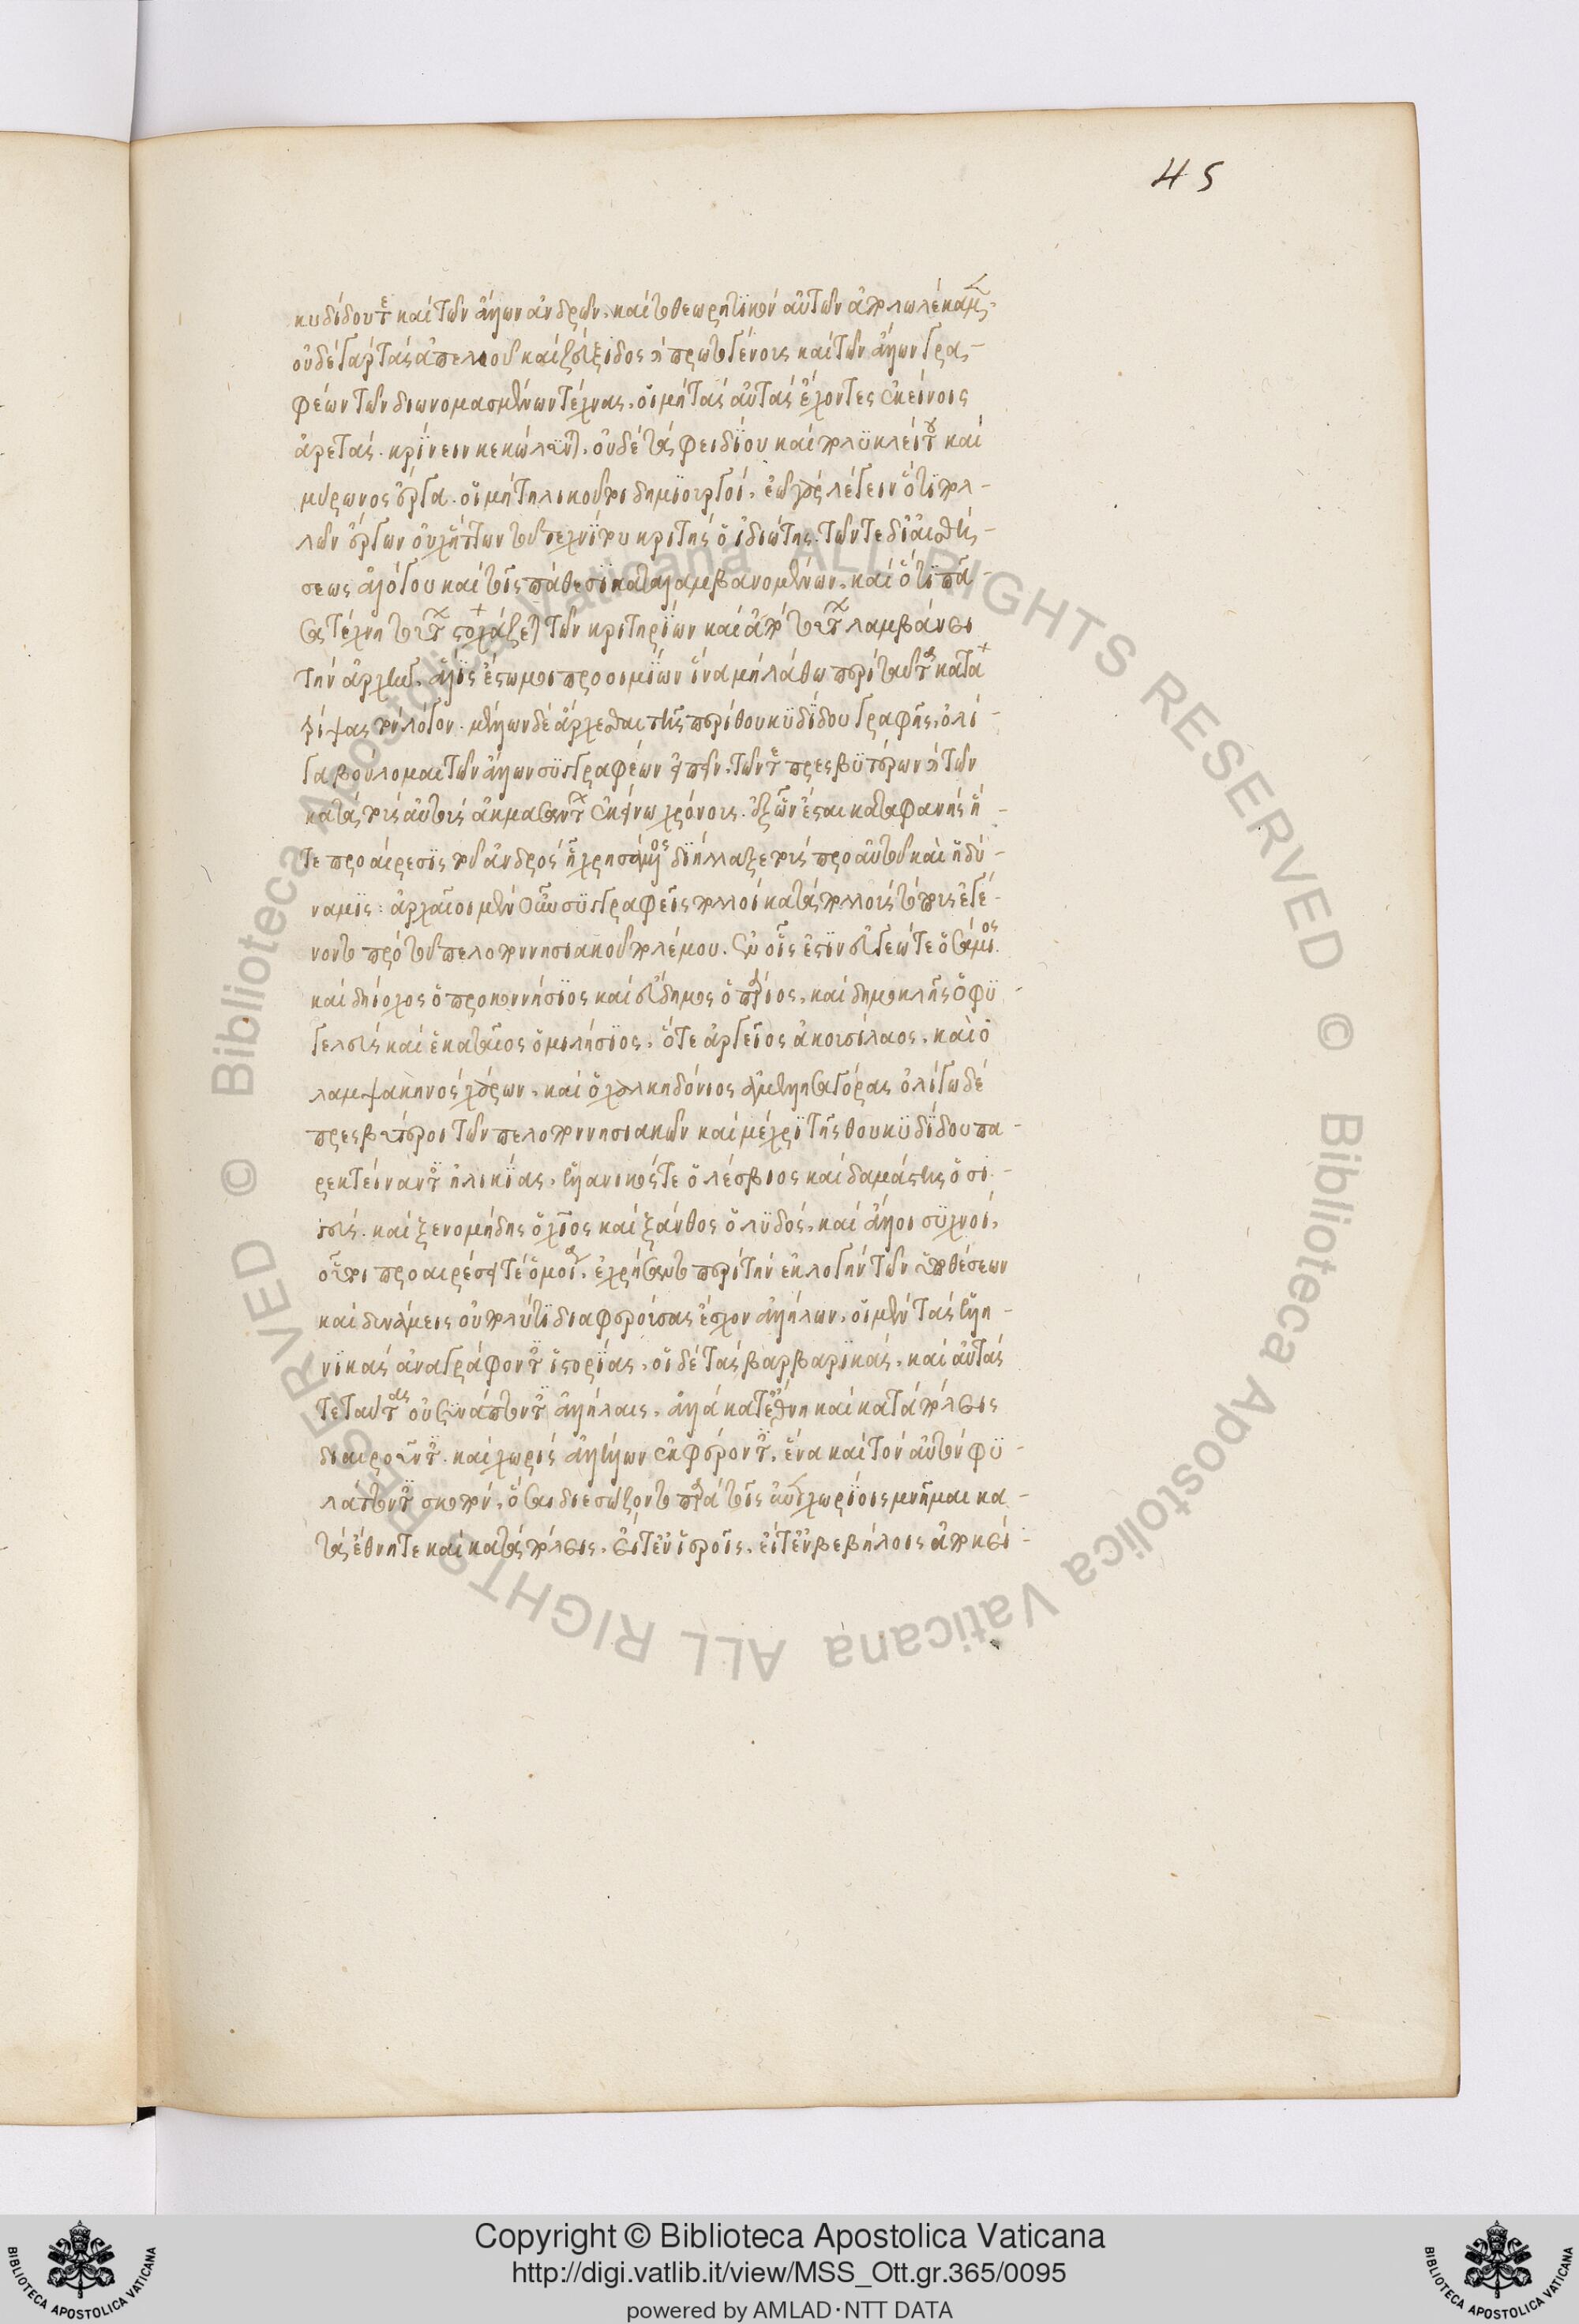 45
κυδίδου τὲ καὶ τῶν ἄλλων ἀνδρῶν, καὶ τὸ θεωρητικὸν αὐτῶν ἀπολωλέκαμεν,
οὐδὲ γὰρ τὰς ἀπελλοῦ καὶ ζεύξιδος καὶ πρωτογένους καὶ τῶν ἄλλων γρα-
φέων τῶν διωνομασμένων τέχνας, οἱ μὴ τὰς αὐτὰς ἔχοντες ἐκείνοις
ἀρετάς. κρίνειν κεκώλυνται, οὐδὲ τὰ φειδίου καὶ πολυκλείτου καὶ
μύρωνος ἔργα. οἱ μὴ τηλικοῦτοι δημιουργοί, ἐῶ γὰρ λέγειν ὅτι πολ-
λῶν ἔργων οὐχ ἥττων τοῦ τεχνίτου κριτὴς ὁ ἰδιώτης. τῶν τε δι' αἰσθή-
σεως ἀλόγου καὶ τοῖς πάθεσι καταλαμβανομένων, καὶ ὅτι πᾶ-
σα τέχνη τούτων στοχάζεται τῶν κριτηρίων καὶ ἀπὸ τούτων λαμβάνει
τὴν ἀρχήν. ἅλις ἔστω μοι προοιμίων ἵνα μὴ λάθω περὶ ταῦτα κατα
τρίψας τὸν λόγον. μέλλων δὲ ἄρχεσθαι τῆς περὶ θουκυδίδου γραφῆς, ὀλί-
γα βούλομαι τῶν ἄλλων συγγραφέων εἰπεῖν. τῶν τὲ πρεσβυτέρων καὶ τῶν
κατὰ τοὺς αὐτοὺς ἀκμασάντων ἐκείνω χρόνους. ἐξ ὧν ἔσται καταφανὴς ἥ
τε προαίρεσις τοῦ ἀνδρὸς ᾗ χρησάμενος διήλλαξε τοὺς πρὸ αὐτοῦ καὶ ἡ δύ-
ναμις: ἀρχαῖοι μὲν οὖν συγγραφεῖς πολλοὶ κατὰ πολλοὺς τόπους ἐγέ-
νοντο πρὸ τοῦ πελοποννησιακοῦ πολέμου. ἐν οἷς ἐστὶν εὐγεώ τε ὁ σάμιος
καὶ δηίοχος ὁ προκοννήσιος καὶ εὔδημος ὁ πάριος, καὶ δημοκλῆς ὁ φυ-
γελεὺς καὶ ἑκαταῖος ὁ μιλήσιος, ὅτε ἀργεῖος ἀκουσίλαος, καὶ ὁ
λαμψακηνὸς χάρων, καὶ ὁ χαλκηδόνιος ἀμελησαγόρας ὀλίγω δὲ
πρεσβύτεροι τῶν πελοποννησιακῶν καὶ μέχρι τῆς θουκυδίδου πα-
ρεκτείναντες ἡλικίας, ἑλλάνικός τε ὁ λέσβιος καὶ δαμάστης ὁ σι-
γειεύς. καὶ ξενομήδης ὁ χῖος καὶ ξάνθος ὁ λυδός, καὶ ἄλλοι συχνοί,
οὗτοι προαιρέσει τὲ ὁμοία, ἐχρήσαντο περὶ τὴν ἐκλογὴν τῶν ὑποθέσεων
καὶ δυνάμεις οὐ πολύ τι διαφερούσας ἔσχον ἀλλήλων, οἱ μὲν τὰς ἑλλη-
νικὰς ἀναγράφοντες ἱστορίας, οἱ δὲ τὰς βαρβαρικάς, καὶ αὐτὰς
τε ταύτας οὐ συνάπτοντες ἀλλήλαις, ἀλλὰ κατ' ἔθνη καὶ κατὰ πόλεις
διαιροῦντες. καὶ χωρὶς ἀλλήλων ἐκφέροντες, ἕνα καὶ τὸν αὐτὸν φυ-
λάττοντες σκοπόν, ὅσαι διεσώζοντο παρὰ τοῖς ἐπιχωρίοις μνῆμαι κα-
τὰ ἔθνη τε καὶ κατὰ πόλεις, εἴτ' ἐν ἱεροῖς, εἴτ' ἐν βεβήλοις ἀποκεί-
Copyright © Biblioteca Apostolica Vaticana
http://digi.vatlib.it/view/MSS_Ott.gr.365/0095
powered by AMLAD·NTT DATA